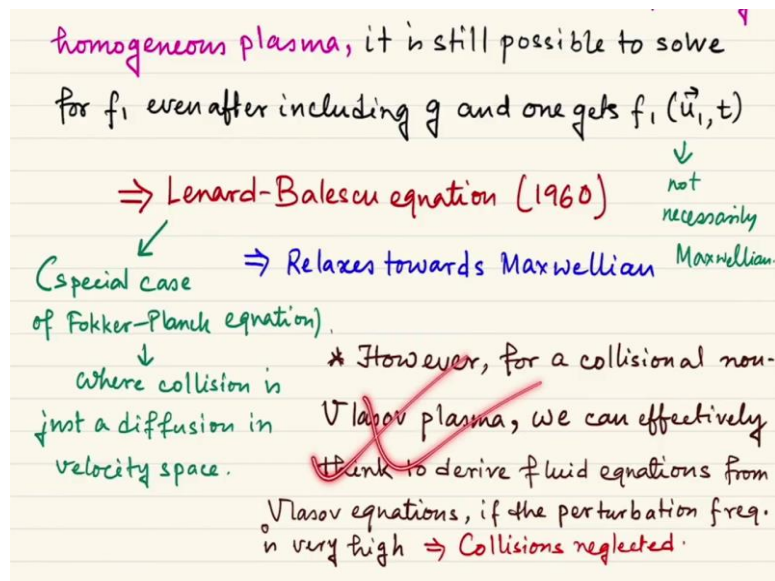 homogeneous plasma, it is still possible to solve
for f₁ even after including g and one gets f₁ (u⃗₁, t)
↓
not
necessarily
Maxwellian.
⇒ Lenard-Balescu equation (1960)
⇒ Relaxes towards Maxwellian
(special case
of Fokker-Planck equation).
↓
where collision is
just a diffusion in
velocity space.
* However, for a collisional non-
Vlasov plasma, we can effectively
think to derive fluid equations from
Vlasov equations, if the perturbation freq.
is very high ⇒ Collisions neglected.